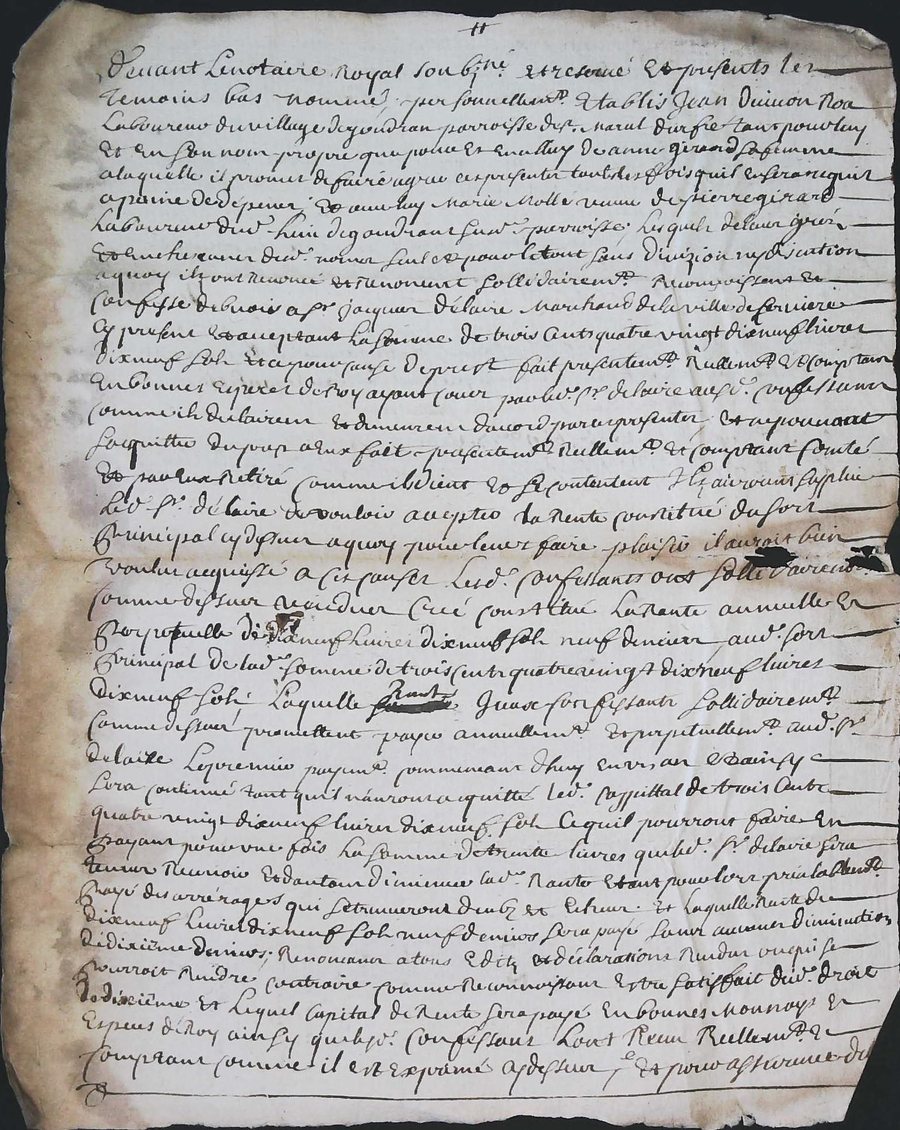 Devant Le notaire Royal soubzné et presents les
temoins bas nommé, personnellemt. Etablis Jean
Laboureur du village de goudran parroisse de St. Marcel durfé tant pour luy
Et en son nom propre que pour Et en celluy de anne girard sa femme
a laquelle il promet de faire agreer ces presentes toutes les fois quil en sera requis
a peine de depens, Et avec luy Marie Molle veuve de pierre girard
Laboureur dud. lieu de goudran susd. parroisse, Lesquels de leur gré
seul et pour le tout sans divizion ny discution
a quoy ils ont Renoncé et Renoncent sollidairemt. Reconnoissent et
confesse debvoir a Sr. jacques délaire Marchand de la ville de
Cy present et acceptant La somme de trois cents quatre vingt dix neuf livres
dix neuf sols Et ce pour cause de prest fait presentemt. Reellemt. Et comptant
En bonnes Especes de Roy ayant cours par led. Sr. delaire ausd. confessants
comme ils declairent Et demeurent d'acord par ces presentes,
Laquitte du prest a Eux fait presentemt. Reellemt. Et comptant compté
Et par Eux Retiré comme ils dient Et se contentent Ils auroient supplié
Led. Sr. délaire de vouloir accepter la Rente constitué du sort
Principal cy dessus a quoy pour leurs faire plaisir il auroit bien
voulu acquiessé a ces causes Lesd. confessants ont sollidairemt.
comme dessus vendu Creé constitué La Rente annuelle Et
Perpetuelle de dix neuf Livres dix neuf sols neuf deniers aud. sort
Principal de lad. somme de trois cents quatre vingt dix neuf livres
dix neuf sols Laquelle Rente confessants sollidairemt.
comme dessus promettent payer annuellemt. Et perpetuellemt. aud. Sr.
delaire Le premier payemt. commencant dhuy en un an Et ainsy
sera continué tant quil n'auront acquitté led. Cappittal de trois Cents
quatre vingt dix neuf livres dix neuf sols Ce quil pourront faire En
Payant pour une fois La somme de trente livres que led. Sr. delaire sera
tenus Recevoir Et dautant diminuer lad. Rante Et
Payé des arrérages qui se trouveront deubz et Echeus. Et Laquelle Rante de
dix neuf Livres dix neuf sols neuf deniers sera payé sans aucune diminution
de dixiéme deniers. Renoncant a tous Edits et déclarations Rendus ou qui se
Pourroit Rendre contraire comme Reconnoissant Estre satisfait dud. droit
de dixiéme Et Lequel Capital de Rente sera payé En bonnes Monnoys Et
Especes de Roy ainsy que lesd. confessant Lont Receu Reellemt. Et
Comptant comme il est Exprimé cy dessus Et pour assurance du